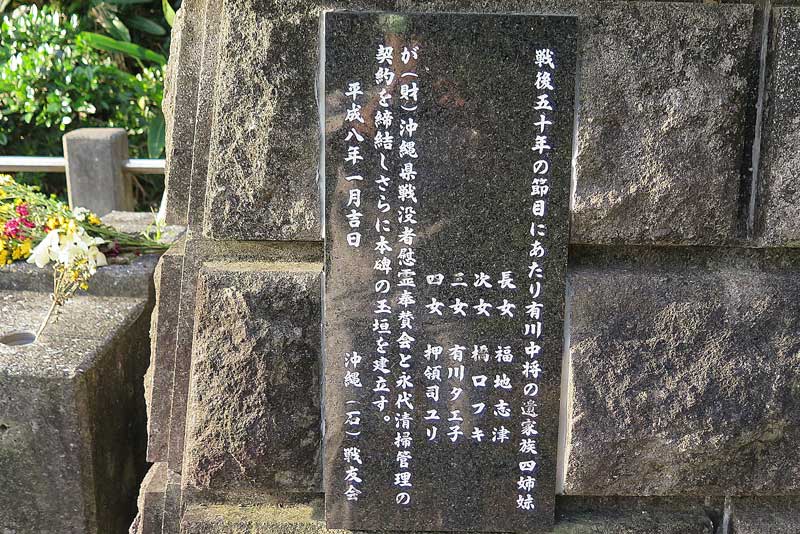 戦後五十年の節目にあたり有川中将の遺家族四姉妹
長女　福地志津
次女　橋口フキ
三女　有川タエ子
四女　押領司ユリ
が（財）沖縄県戦没者慰霊奉賛会と永代清掃管理の
契約を締結しさらに本碑の玉垣を建立す。
平成八年一月吉日　沖縄（石）戦友会